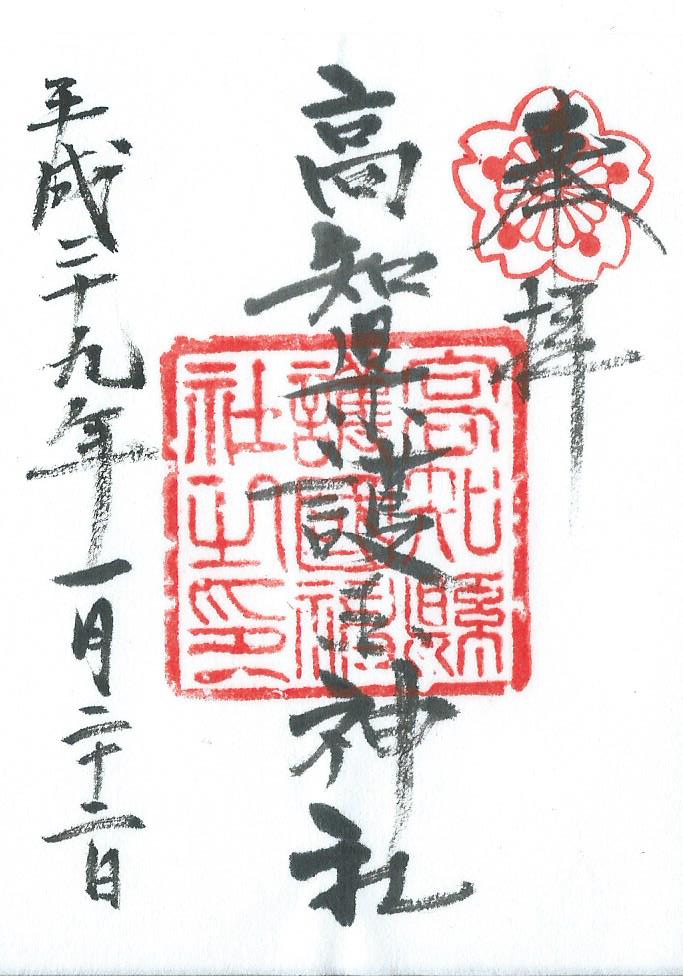 奉拝
高知県護国神社
平成二十九年一月二十二日
高知縣
護國神
社之印